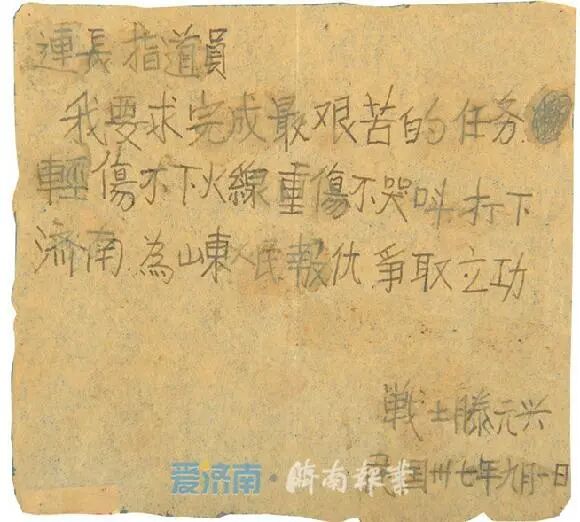 連長指道員
我要求完成最艰苦的任务
輕傷不下火線重傷不哭叫打下
济南為山東人民報仇争取立功
戰士滕元兴
民国卅七年九月一日
爱济南·济南报业